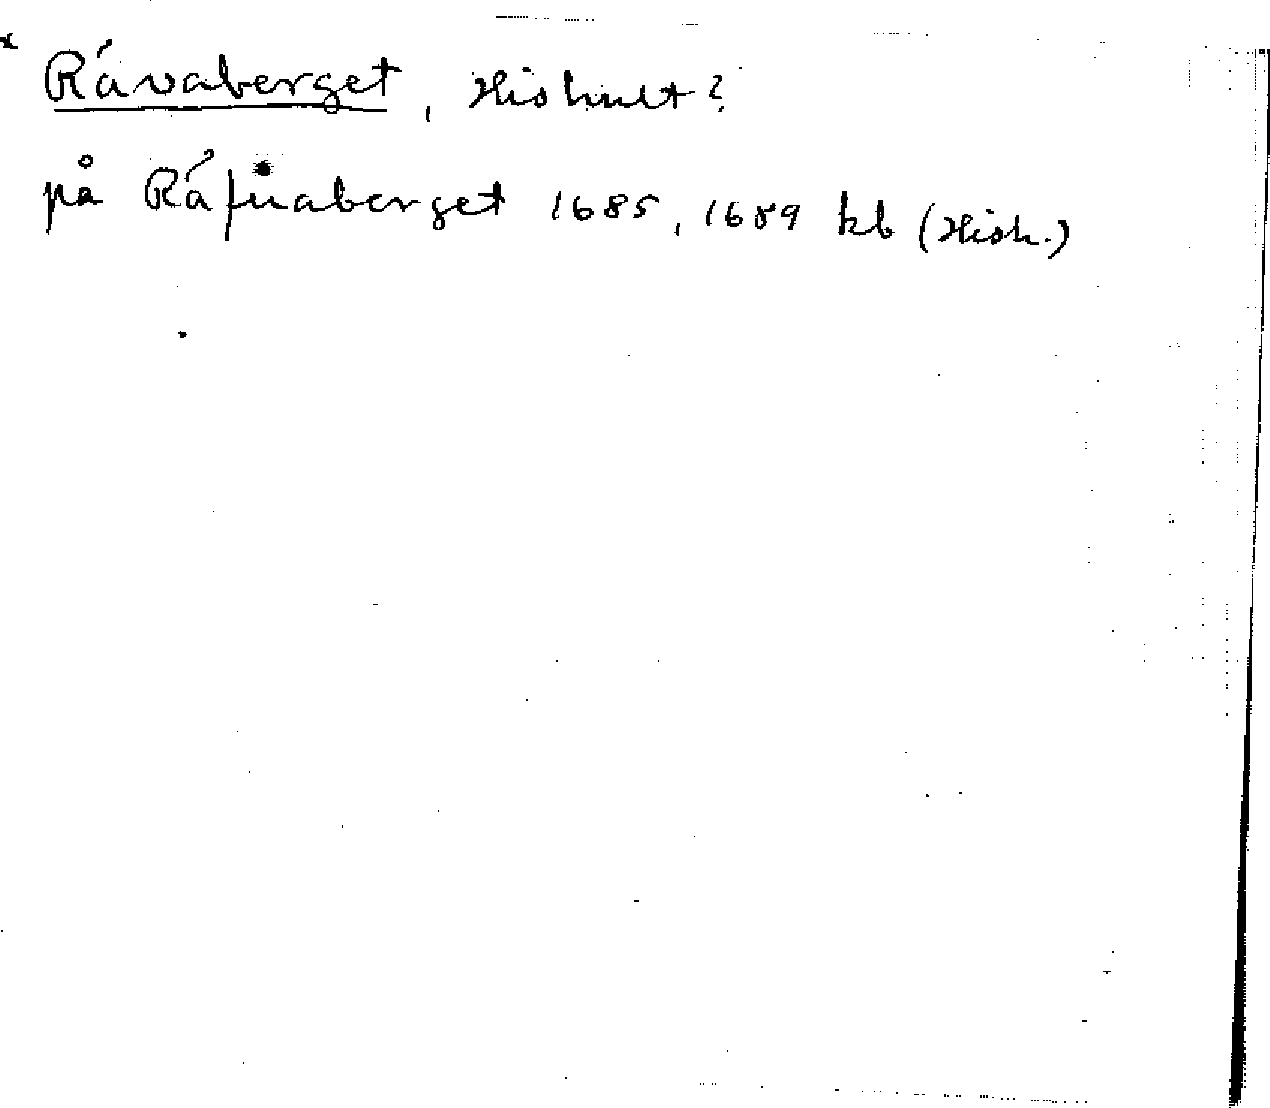 x Råvaberget, Hishult?
på Råfuaberget 1685, 1689 kb (Hish.)